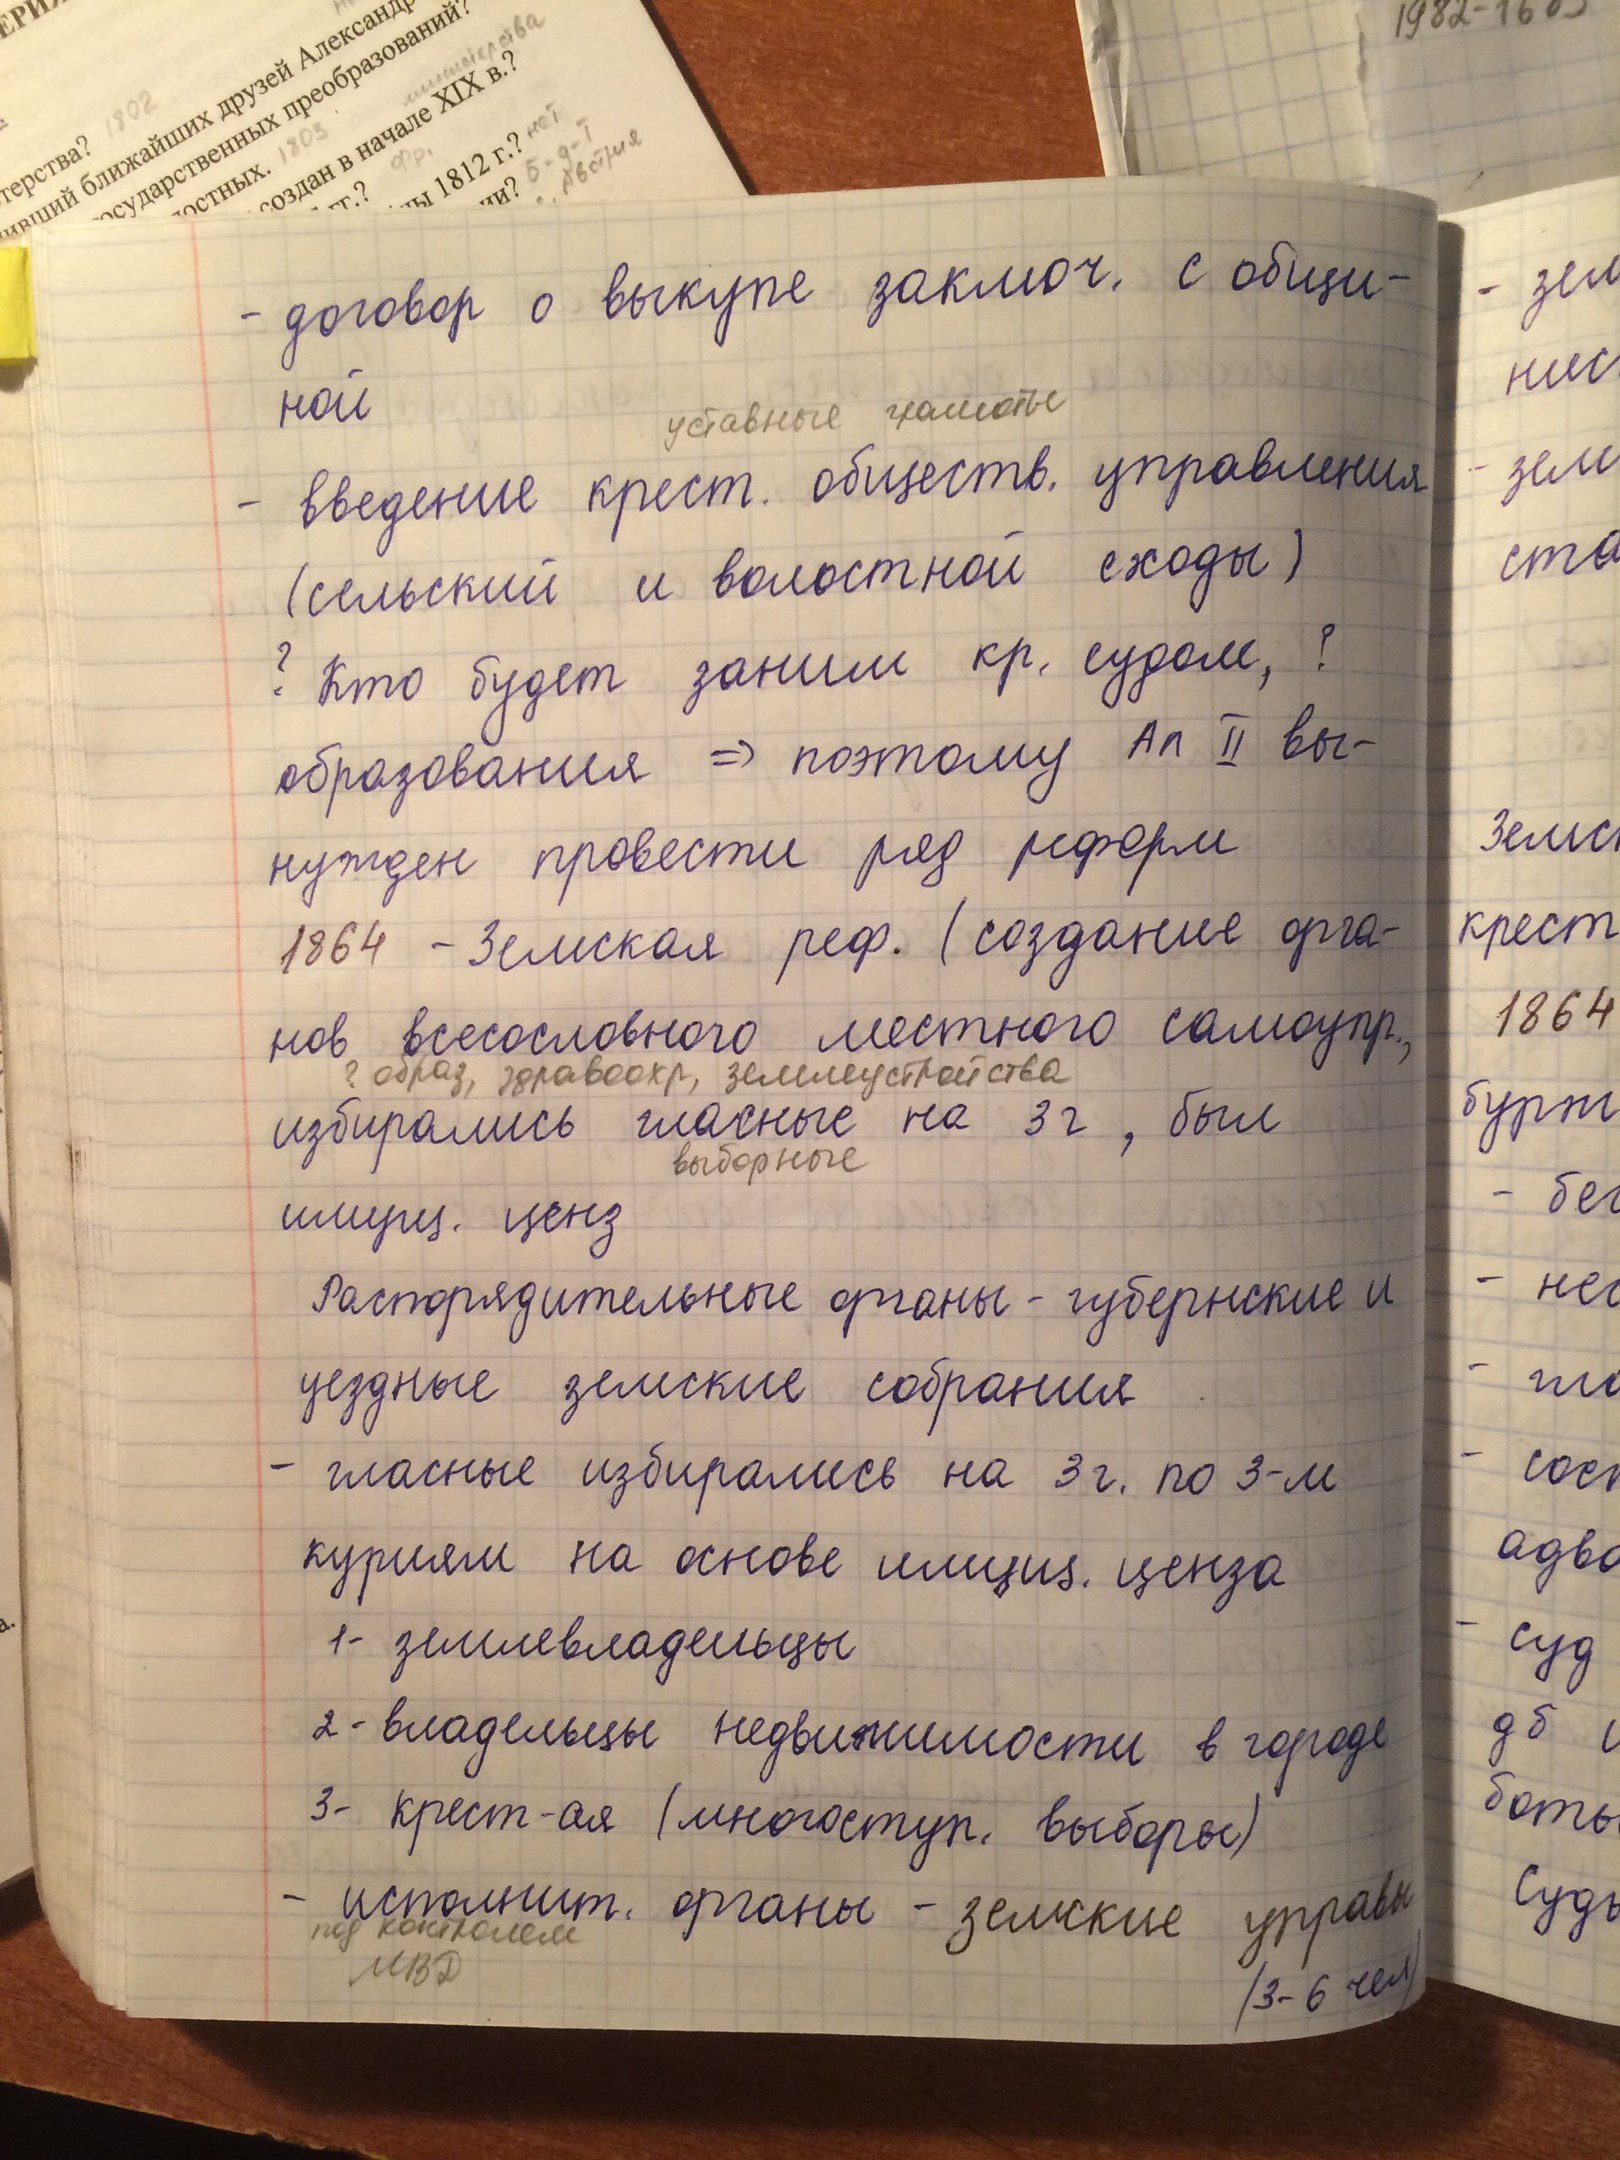 ЕРИ
ближайших друзей Александр
терства? 1802
государственных преобразований?
министерства
остных. 1803
создан в начале XIX в.?
гг.? Фр.
ны 1812 г.? нет
ии? Австрия
1982-1605
- договор о выкупе заключ. с общи-
ной
уставные грамоты
- введение крест. обществ. управления
(сельский и волостной сходы)
? Кто будет заним кр. судом, ?
образования => поэтому Ал II вы-
нужден провести ряд реформ
1864 - Земская реф. (создание орга-
нов всесословного местного самоупр.,
? образ, здравоохр, землеустройства
избирались гласные на 3 г, был
выборные
имущ. ценз
Распорядительные органы - губернские и
уездные земские собрания
- гласные избирались на 3 г. по 3-м
куриям на основе имущ. ценза
1- землевладельцы
2- владельцы недвижимости в городе
3- крест-ая (многоступ. выборы)
- исполнит. органы - земские управы
под контролем
МВД
(3-6 чел)
- зем
нис
- зем
ста
Земс
крест
1864
бурж
- бес
- нес
- гла
- сос
адво
- суд
дб
боты
Судь